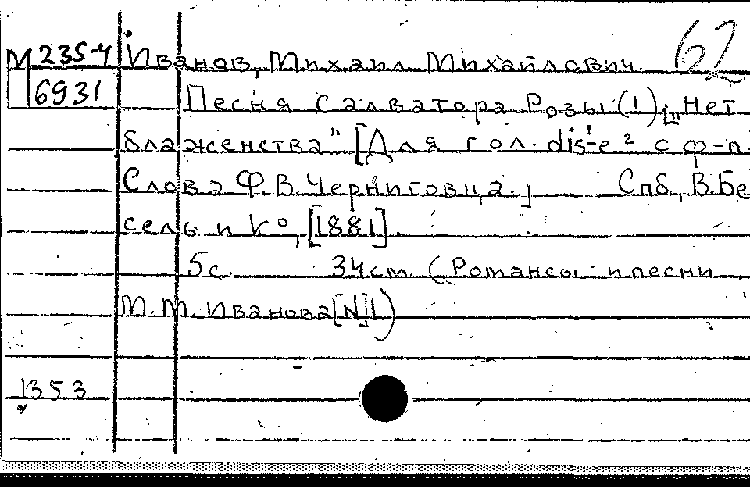 62
М 235-4 Иванов, Михаил Михайлович
6931 Песня Салватора Розы (1) „Нет
блаженства" [Для гол. dis¹-e² с ф-п.
Слова Ф.В.Черниговца.] Спб, В.Бе
сель и К⁰, [1881]
5с. 34 cm. (Романсы и песни
М.М.Иванова [N]1)
1353